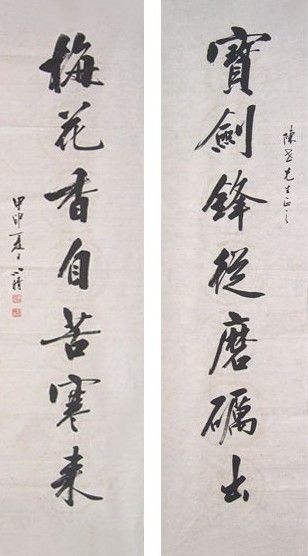 寶劍鋒從磨礪出
先生正之
梅花香自苦寒來
甲申夏日